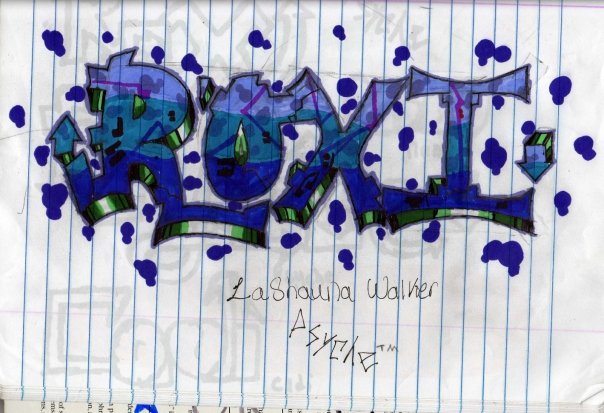 ROXI
LaShauna Walker
Psycle™